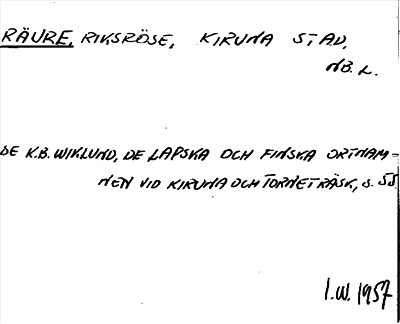 RÄURE, RIKSRÖSE, KIRUNA STAD,
NB. L.
SE K.B. WIKLUND, DE LAPSKA OCH FINSKA ORTNAM=
NEN VID KIRUNA OCH TORNETRÄSK, S. 55
I.W. 1957